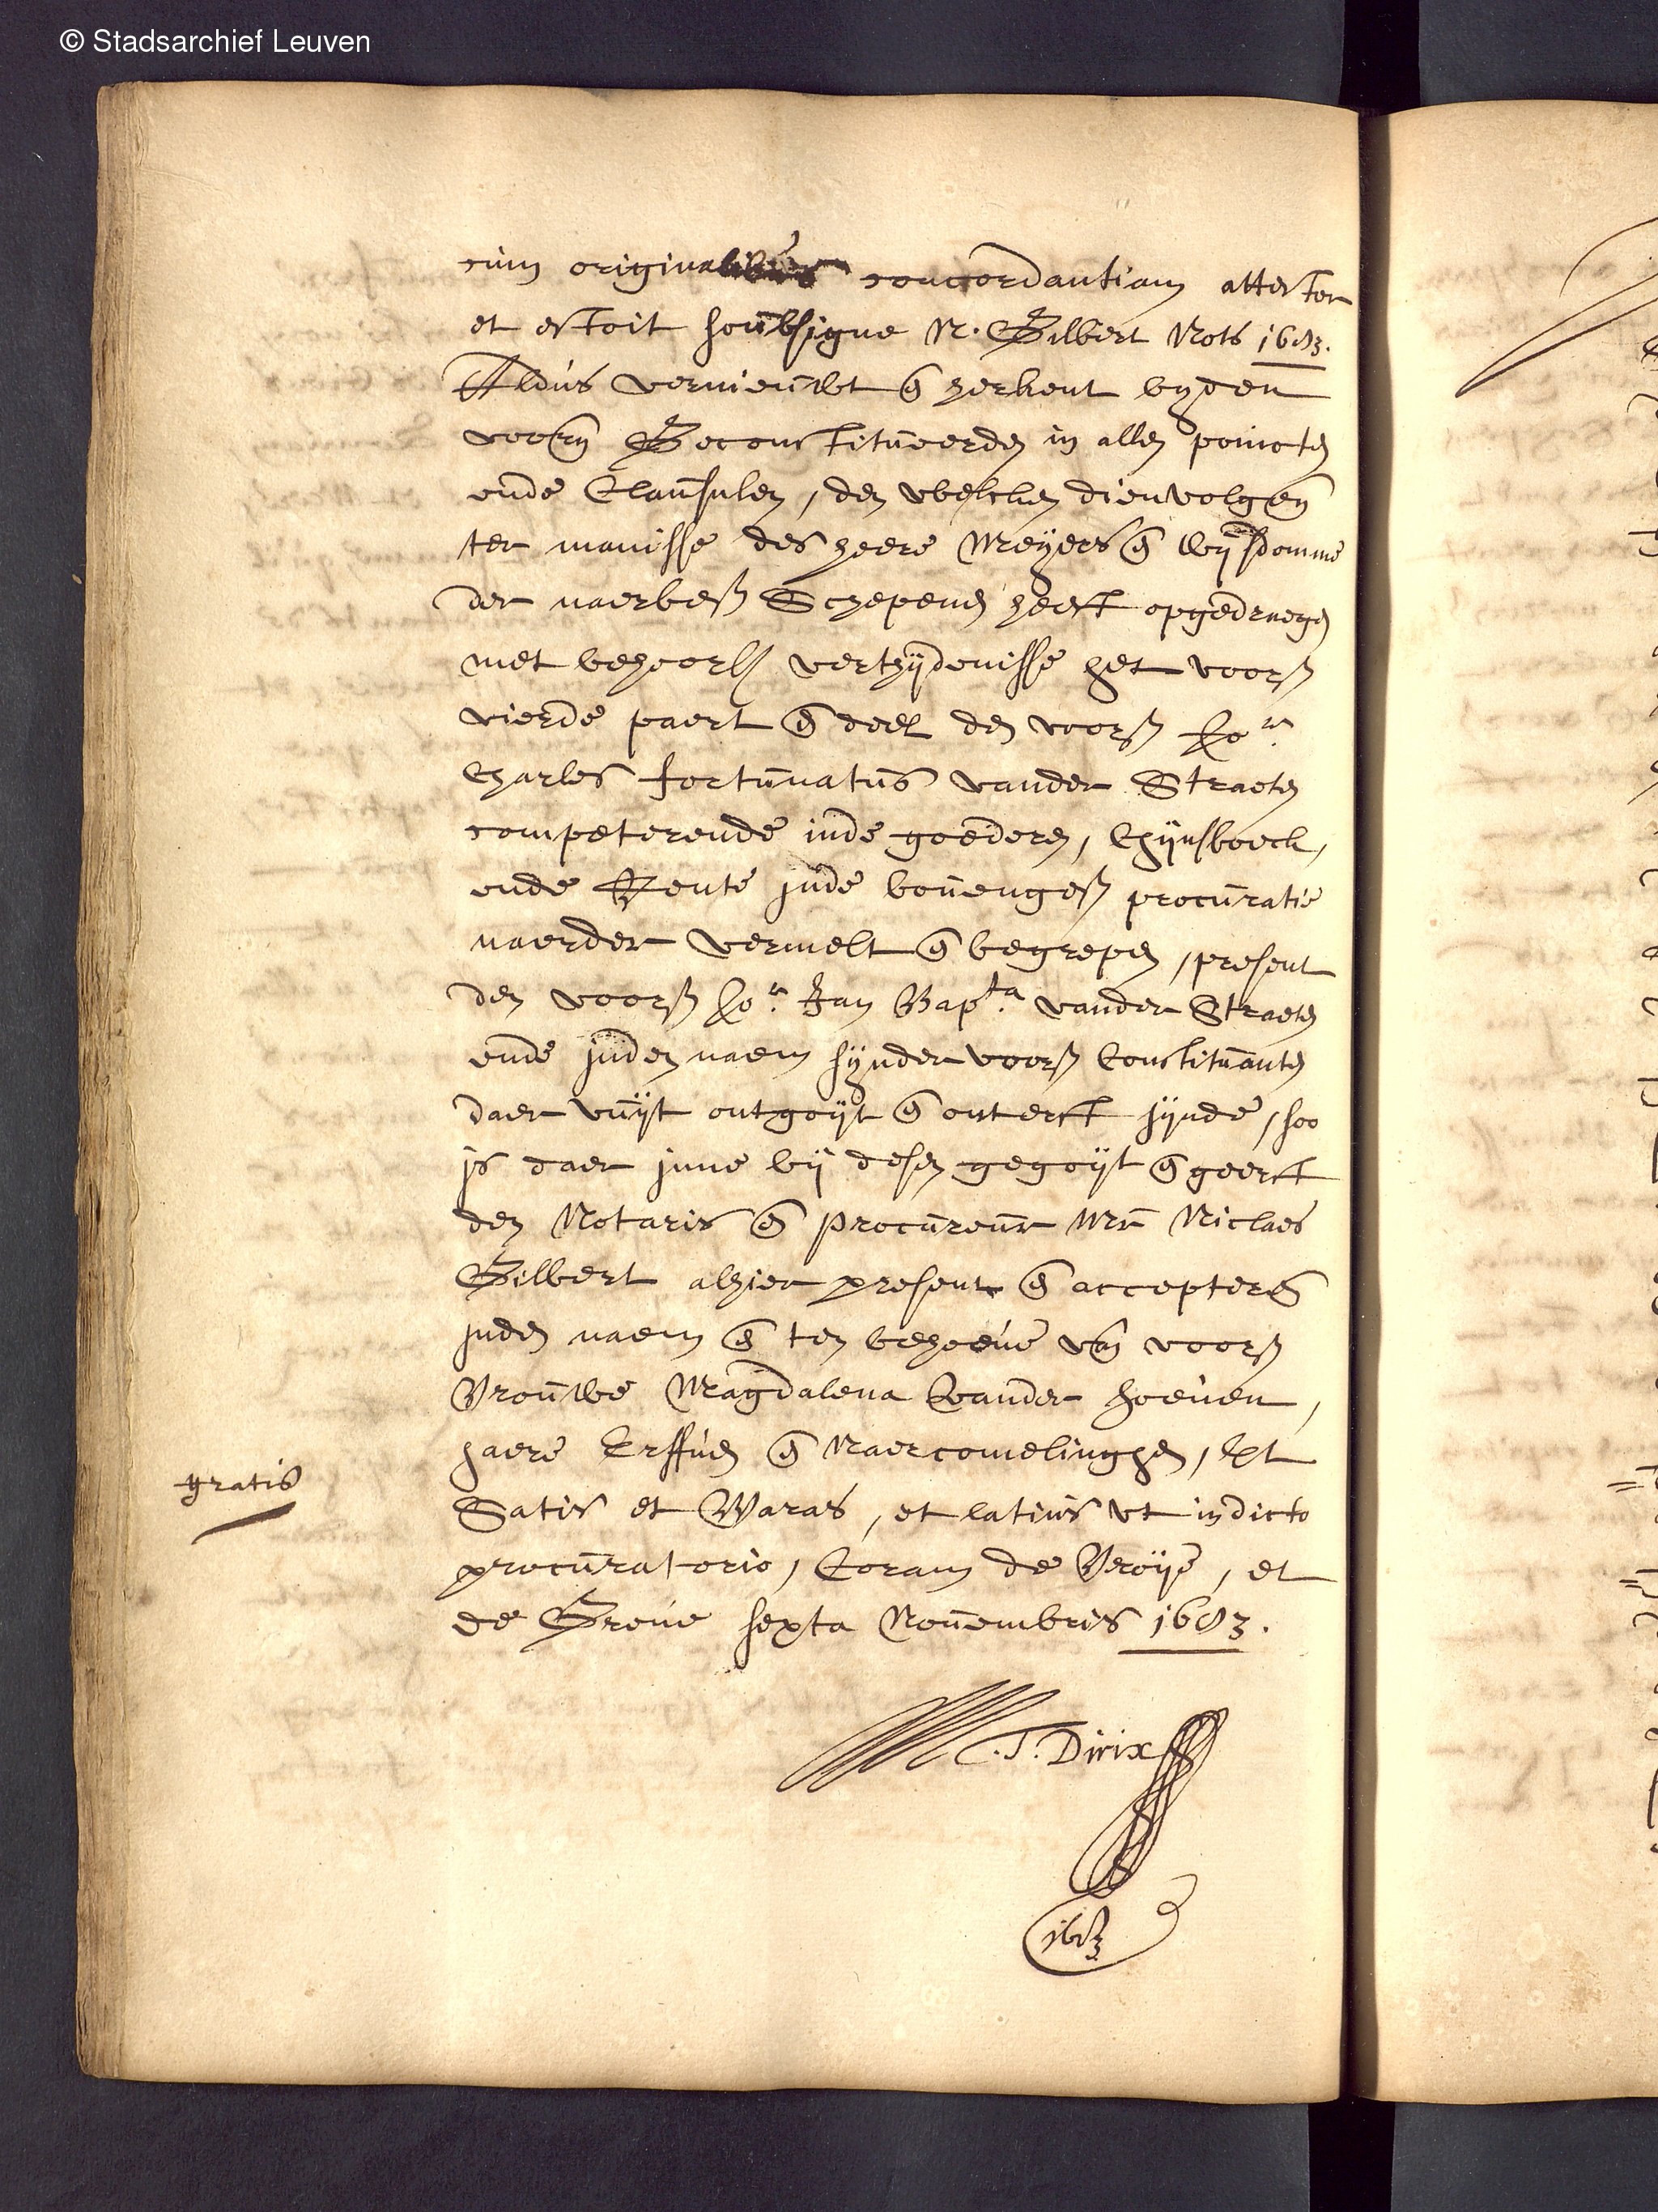 © Stadsarchief Leuven
cum originalibus concordantiam attestor
et estoit soubsigne N. Gilbert Nots 1683.
Aldus vernieuwt en herkent byden
voorn Geconstitueerden in allen poincten
ende Clausulen, den welcken dienvolgen
ter manisse des heere Meyers en wijsdomme
der naerbesz Schepenen heeft opgedraegen
met behoorl verthijdenisse het voorsz
vierde paert en deel den voorsz Jor
Charles fortunatus vander Straeten
competerende inde goederen, Chijnsboeck,
ende Rente inde bovengesz procuratie
naerder vermelt en begrepen, present
den voorsz Jor Jan Bapta vander Straeten
ende inden naem sijnder voorsz Constituanten
daer vuijt ontgoijt en onterft sijnde, soo
is daer inne bij desen gegoijt en geerft
den Notaris en procureur Mr Niclaes
Gilbert alhier present en accepteren
inden naem en ten behoeve van voorsz
Vrouwe Magdalena Vander hoeven,
haere Erffven en Naercomelinghen, Et
gratis
Satis et Waras, et latius ut in dicto
procuratorio, Coram de Vroije, et
de Greve sexta Novembris 1683.
C. T. Dirix
1683